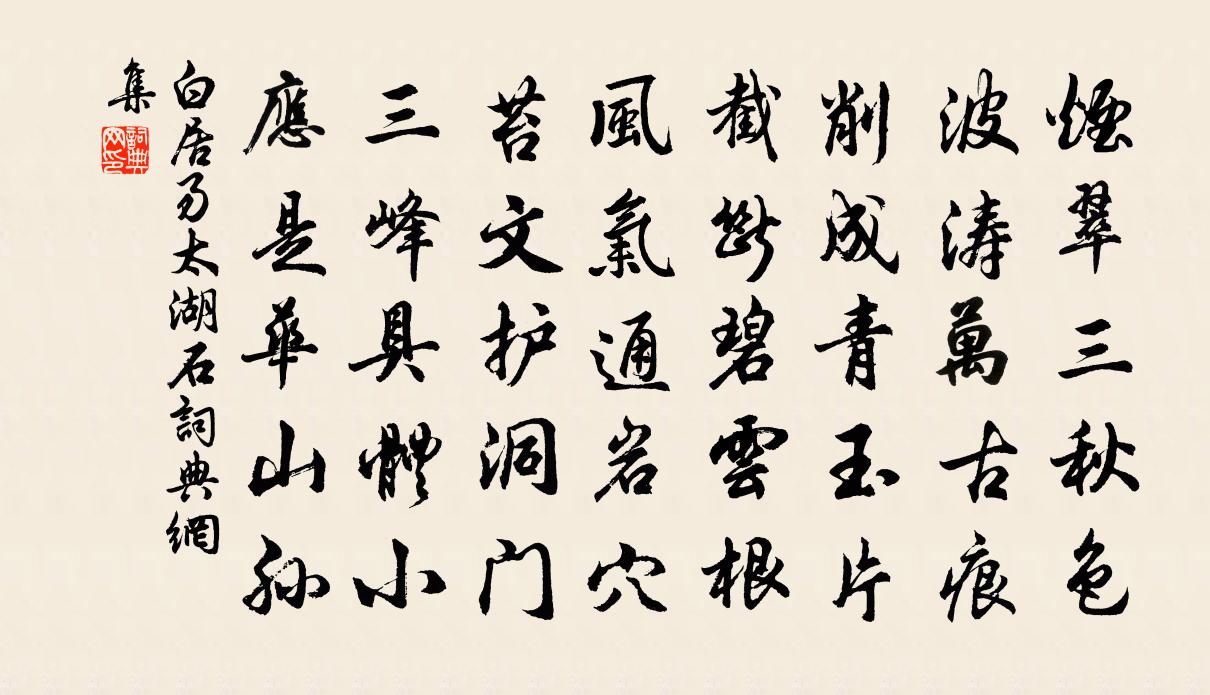 煙翠三秋色
波濤萬古痕
削成青玉片
截斷碧雲根
風氣通岩穴
苔文护洞门
三峰具體小
應是華山孫
白居易太湖石詞典網
集
詞典网印